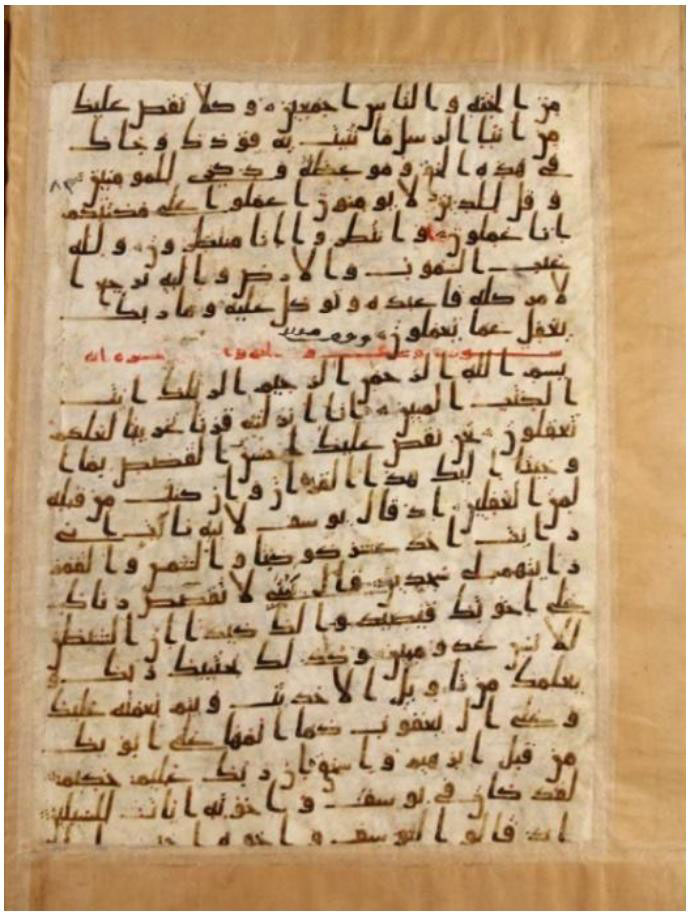 من الجنه والناس اجمعين وكلا نقص عليك
من انبا الرسل ما نثبت به فودك وجاك
في هذه الحق وموعظه وذكرى للمومنين
وقل للذين لا يومنون اعملوا على مكنتكم
انا عملون وانتظروا انا منتظرون ولله
غيب السموت والارض واليه يرجع ا
لامر كله فاعبده وتوكل عليه وما ربك
بغفل عما تعملون
بسم الله الرحمن الرحيم الر تلك ايت
الكتب المبين انا انزلنه قرنا عربيا لعلكم
تعقلون نحن نقص عليك احسن القصص بما ا
وحينا اليك هذا القران وان كنت من قبله
لمن الغفلين اذ قال يوسف لابيه يابت اني
رايت احد عشر كوكبا والشمس والقمر
رايتهم لي سجدين قال يبني لا تقصص رياك
على اخوتك فيكيدوا لك كيدا ان الشيطن
للانسن عدو مبين وكذلك يجتبيك ربك و
يعلمك من تاويل الاحديث ويتم نعمته عليك
وعلى ال يعقوب كما اتمها على ابويك
من قبل ابرهيم واسحق ان ربك عليم حكيم
لقد كان في يوسف واخوته ايت للسايلين
اذ قالوا ليوسف واخوه احب